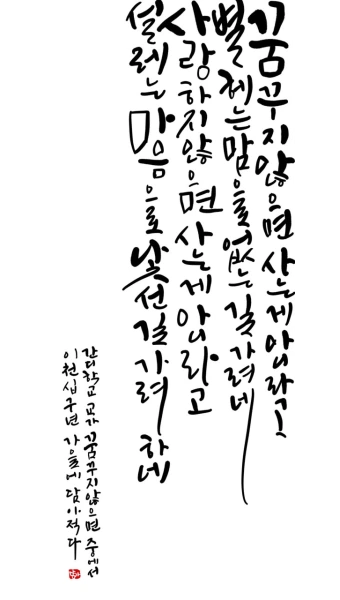 꿈꾸지않으면 사는게 아니라고
별 헤는 맘으로 없는 길 가려네
사랑하지않으면 사는게 아니라고
설레는 마음으로 낯선 길 가려 하네
간디학교 교가 꿈꾸지않으면 중에서
이천십구년 가을에 담아적다